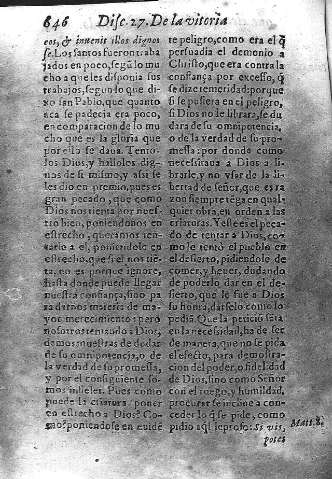 646 Disc. 27. De la vitoria
eos, & inuenit illos dignos
se. Los santos fueron traba
jados en poco, segũ lo mu
cho a que les disponia sus
trabajos, segun lo que di-
xo san Pablo, que quanto
aca se padecia era poco,
en comparacion de lo mu
cho que es la gloria que
por ella se da. Tento-
los Dios, y hallòlos dig-
nos de si mismo, y assi se
les dio en premio, pues es
gran pecado, que como
Dios nos tienta por nues-
tro bien, poniendonos en
estrecho, queramos ten-
tarlo a el, poniendole en
estrecho, que si el nos tie-
ta, no es porque ignore,
hasta donde puede llegar
nuestra confiança, sino pa
ra darnos materia de ma-
yor merecimiento: pero
nosotros tentando a Dios,
demos muestras de dudar
de su omnipotencia, o de
la verdad de su promessa,
y por el consiguiente so-
mos infieles. Pues como
puede la criatura poner
en estrecho a Dios? Co-
mo? poniendose en euidẽ
te peligro, como era el q̃
persuadia el demonio a
Christo, que era contra la
confiança por excesso, q̃
se dize temeridad: porque
si se pusiera en el peligro,
si Dios no le librara, se du
dara de su omnipotencia,
o de la verdad de su pro-
messa: por donde como
necessitaua a Dios a li-
brarle, y no vsar de la li-
bertad de señor, que es ra
zon siempre tẽga en qual-
quier obra, en orden a las
criaturas. Y este es el peca-
do de tentar a Dios, co-
mo le tentò el pueblo en
el desierto, pidiendole de
comer, y beuer, dudando
de poderlo dar en el de-
sierto, que le fue a Dios
su honra, darselo como lo
pedia. Que la peticiõ estã
en la necessidad, ha de ser
de manera, que no se pida
el efecto, para demostra-
cion del poder, o fidelidad
de Dios, sino como Señor
con el ruego, y humildad,
procurar se incline a con-
ceder lo q̃ se pide, como
pidio aq̃l leproso: Si vis,
potes
Matt. 8.